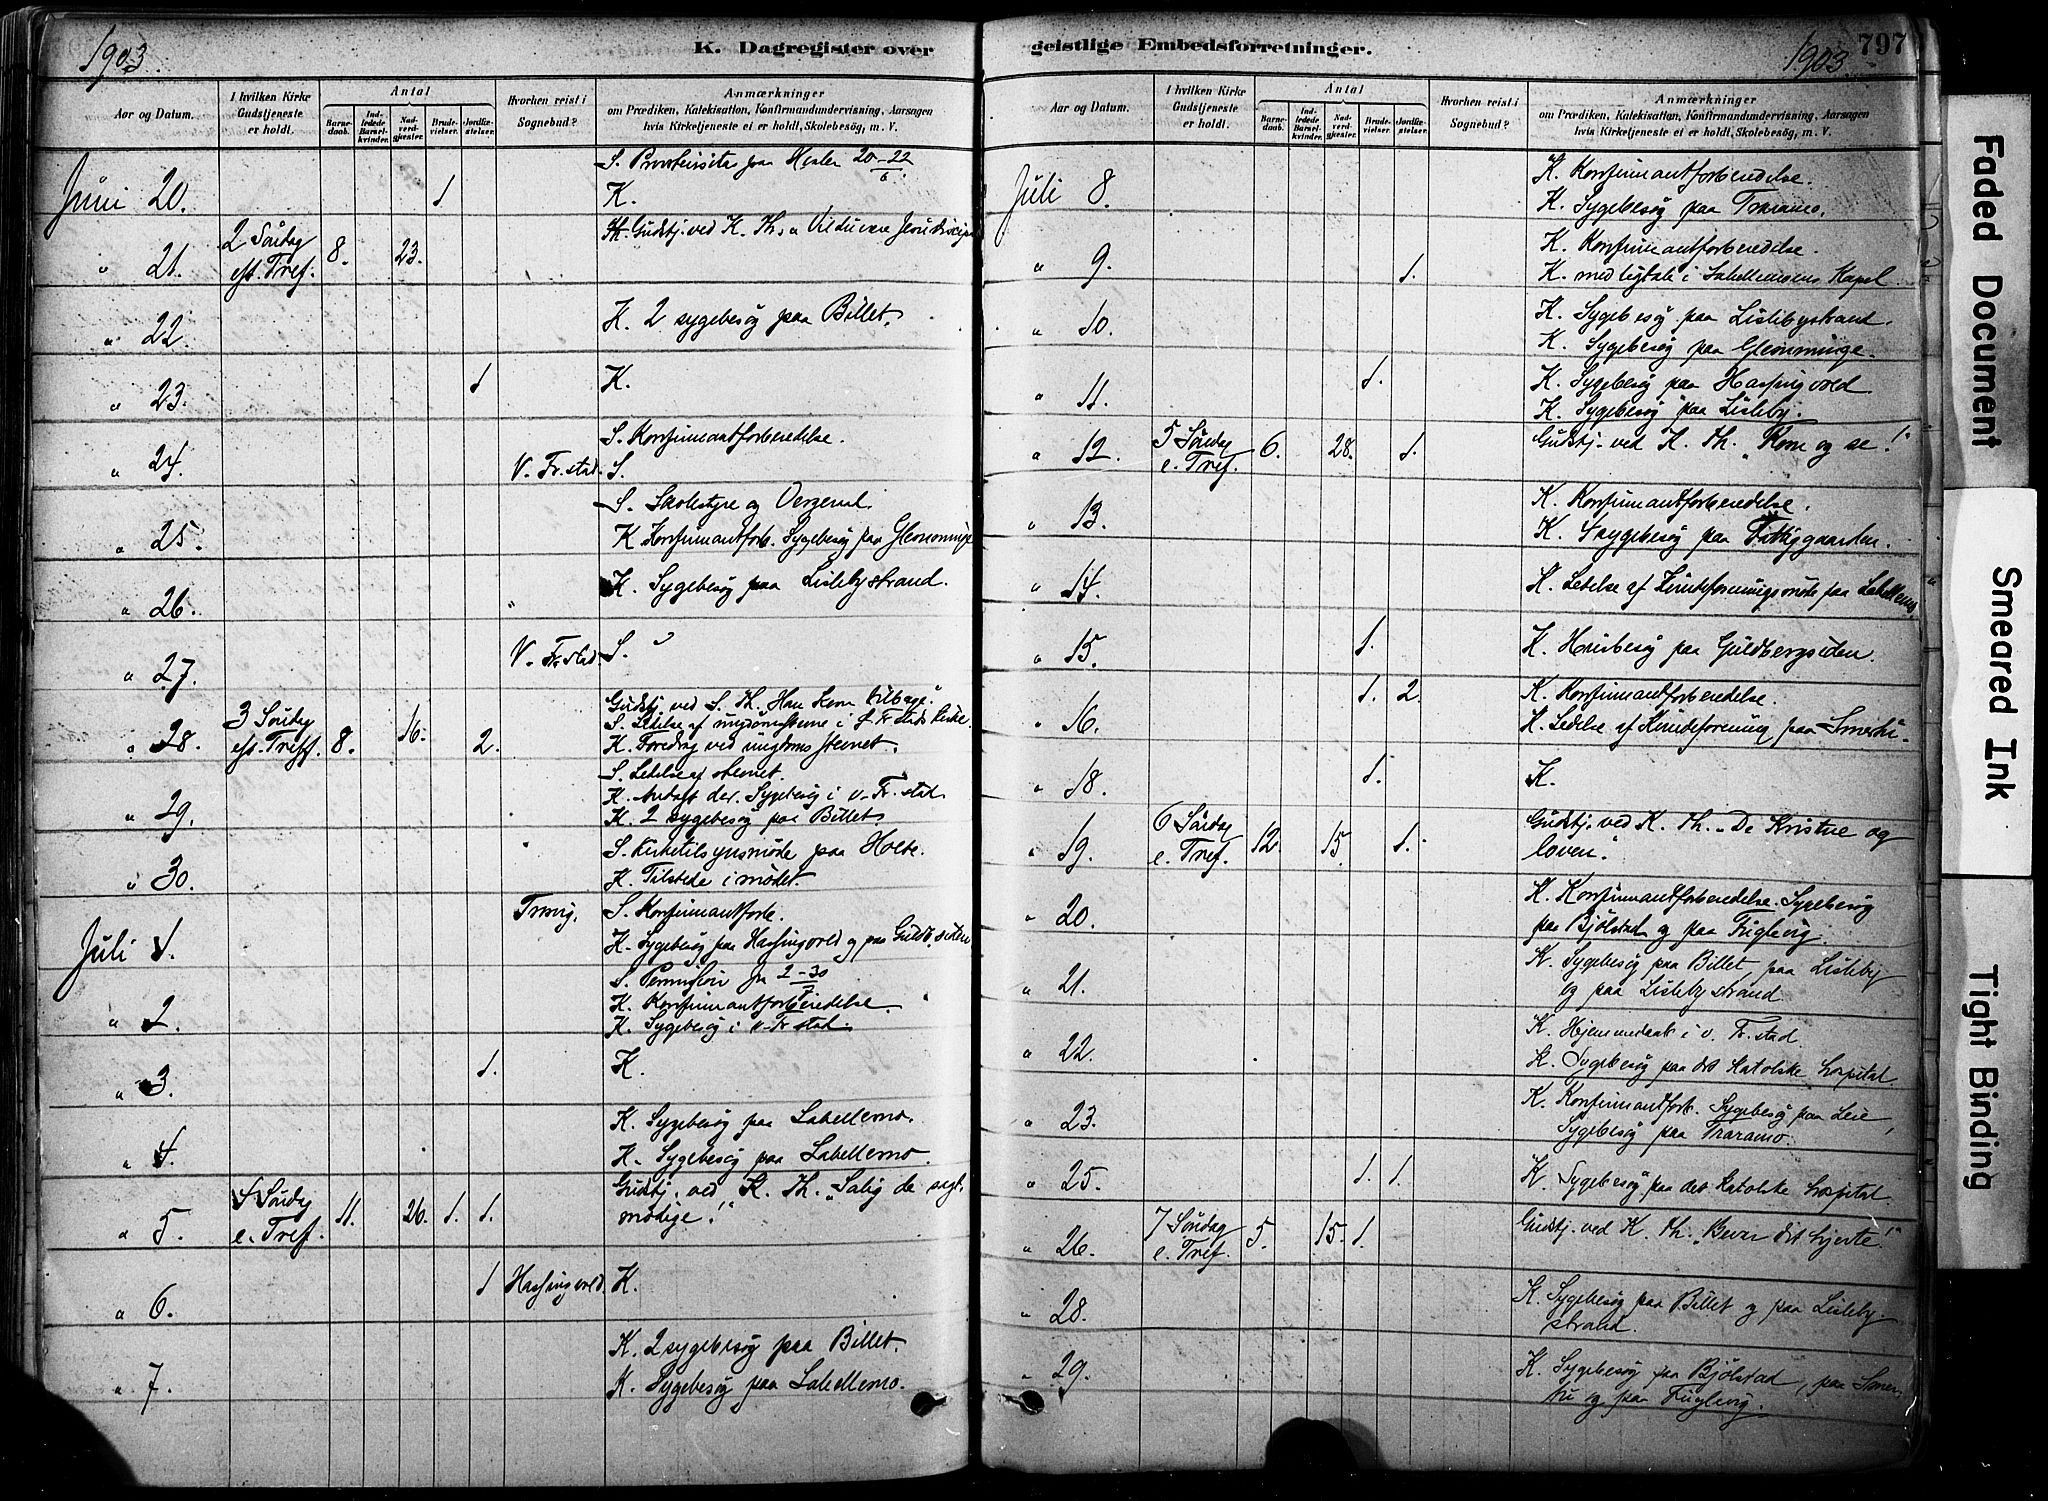 1903
K. Dagregister over
Aar og Datum.
I hvilken Kirke Gudstjeneste er holdt.
Antal
Barnedaab.
Indledede Barselkvinder.
Nadverdgjester.
Brudevielser.
Jordfæstelser.
Hvorhen reist i Sognebud?
Anmærkninger
om Prædiken, Katekisation, Konfirmandundervisning, Aarsagen
hvis Kirketjeneste ei er holdt, Skolebesög, m. V.
S. Provstivisitas paa Hvaler 20-22/6.
Juni 20. 1 K.
" 21. 2 Söndag eft. Tref. 8. 23. Gudstj. ved K. Th. " Vil du være Jesu discipel
" 22. K. 2 sygebesög paa Billet.
" 23. 1 K.
S. Konfirmantforberedelse.
" 24. V. Fr.stad. S.
S. Skolestyre og Vergeraad.
" 25. K Konfirmantforb. Sygebesög paa Glemminge
" 26. " K. Sygebesög paa Lislebystrand.
" 27. V. Fr.stad. S. "
Gudstj. ved S. Th. Han kom tilbage".
S. Ledelse af ungdomsstevne i Fr.stads kirke.
" 28. 3 Söndag eft. Tref. 8. 16. 2. K. Foredrag ved ungdomsstevnet.
S. Ledelse af stevnet.
K. Sygebesög i v. Fr.stad.
" 29. K. 2 sygebesög paa Billet.
S. Kirketilsynsmöde paa Holte.
" 30. K. Tilstede i mödet.
Trosvig. S. Konfirmantforb.
Juli 1. K. Sygebesög paa Hassingveld og paa Guldb.siden
S. Permission fra 2-30/7
K. Konfirmantforberedelse.
" 2. K. Sygebesög i v. Fr.stad.
" 3. 1. K.
K. Sygebesög paa Labellemo.
" 4. K. Sygebesög paa Labellemo.
" 5. 4 Söndag e. Tref. 11. 26. 1. 1. Gudstj. ved K. Th. "Salig de sagt-
modige!"
" 6. 1 Hassingveld. K.
K. 2 sygebesög paa Billet.
" 7. K. Sygebesög paa Labellemo.
geistlige Embedsforretninger.
1903.
797
Aar og Datum.
I hvilken Kirke Gudstjeneste er holdt.
Antal
Barnedaab.
Indledede Barselkvinder.
Nadverdgjester.
Brudevielser.
Jordfæstelser.
Hvorhen reist i Sognebud?
Anmærkninger
om Prædiken, Katekisation, Konfirmandundervisning, Aarsagen
hvis Kirketjeneste ei er holdt, Skolebesög, m. V.
K. Konfirmantforberedelse.
Juli 8. K. Sygebesög paa Traramo.
K. Konfirmantforberedelse.
" 9. 1. K. med ligtale i Labellemoens Kapel.
K. Sygebesög paa Lislebystrand.
" 10. K. Sygebesög paa Glemminge.
K. Sygebesög paa Hassingveld
" 11. 1. K. Sygebesög paa Lisleby.
" 12. 5 Söndag e. Tref. 6. 28. 1. Gudstj. ved K. Th. "Kom og se!"
K. Konfirmantforberedelse.
" 13. K. Sygebesög paa Fattiggaarden.
" 14. K. Ledelse af Kvindeforeningsmöde paa Labellemo
" 15. 1. K. Husbesög paa Guldbergsiden.
K. Konfirmantforberedelse.
" 16. 1. 2. K. Ledelse af Kvindeforening paa Smertu.
" 18. 1. K.
" 19. 6 Söndag e. Tref. 12. 15. 1. Gudstj. ved K. Th. "De Kristne og
loven".
" 20. K. Konfirmantforberedelse. Sygebesög
paa Bjölstad og paa Fuglevig.
" 21. K. Sygebesög paa Billet, paa Lisleby
og paa Lislebystrand.
K. Hjemmedaab i v. Fr.stad
" 22. K. Sygebesög paa det katolske hospital
" 23. K. Konfirmantforb. Sygebesög paa Leie,
Sygebesög paa Traramo.
" 25. 1. 1. K. Sygebesög paa det katolske hospital.
" 26. 7 Söndag e. Tref. 5. 15. 1. Gudstj. ved K. Th. "Bevar dit hjerte!"
" 28. K. Sygebesög paa Billet og paa Lisleby-
strand.
" 29. K. Sygebesög paa Bjölstad, paa Smer-
tu og paa Fuglevig.
Faded Document
Smeared Ink
Tight Binding